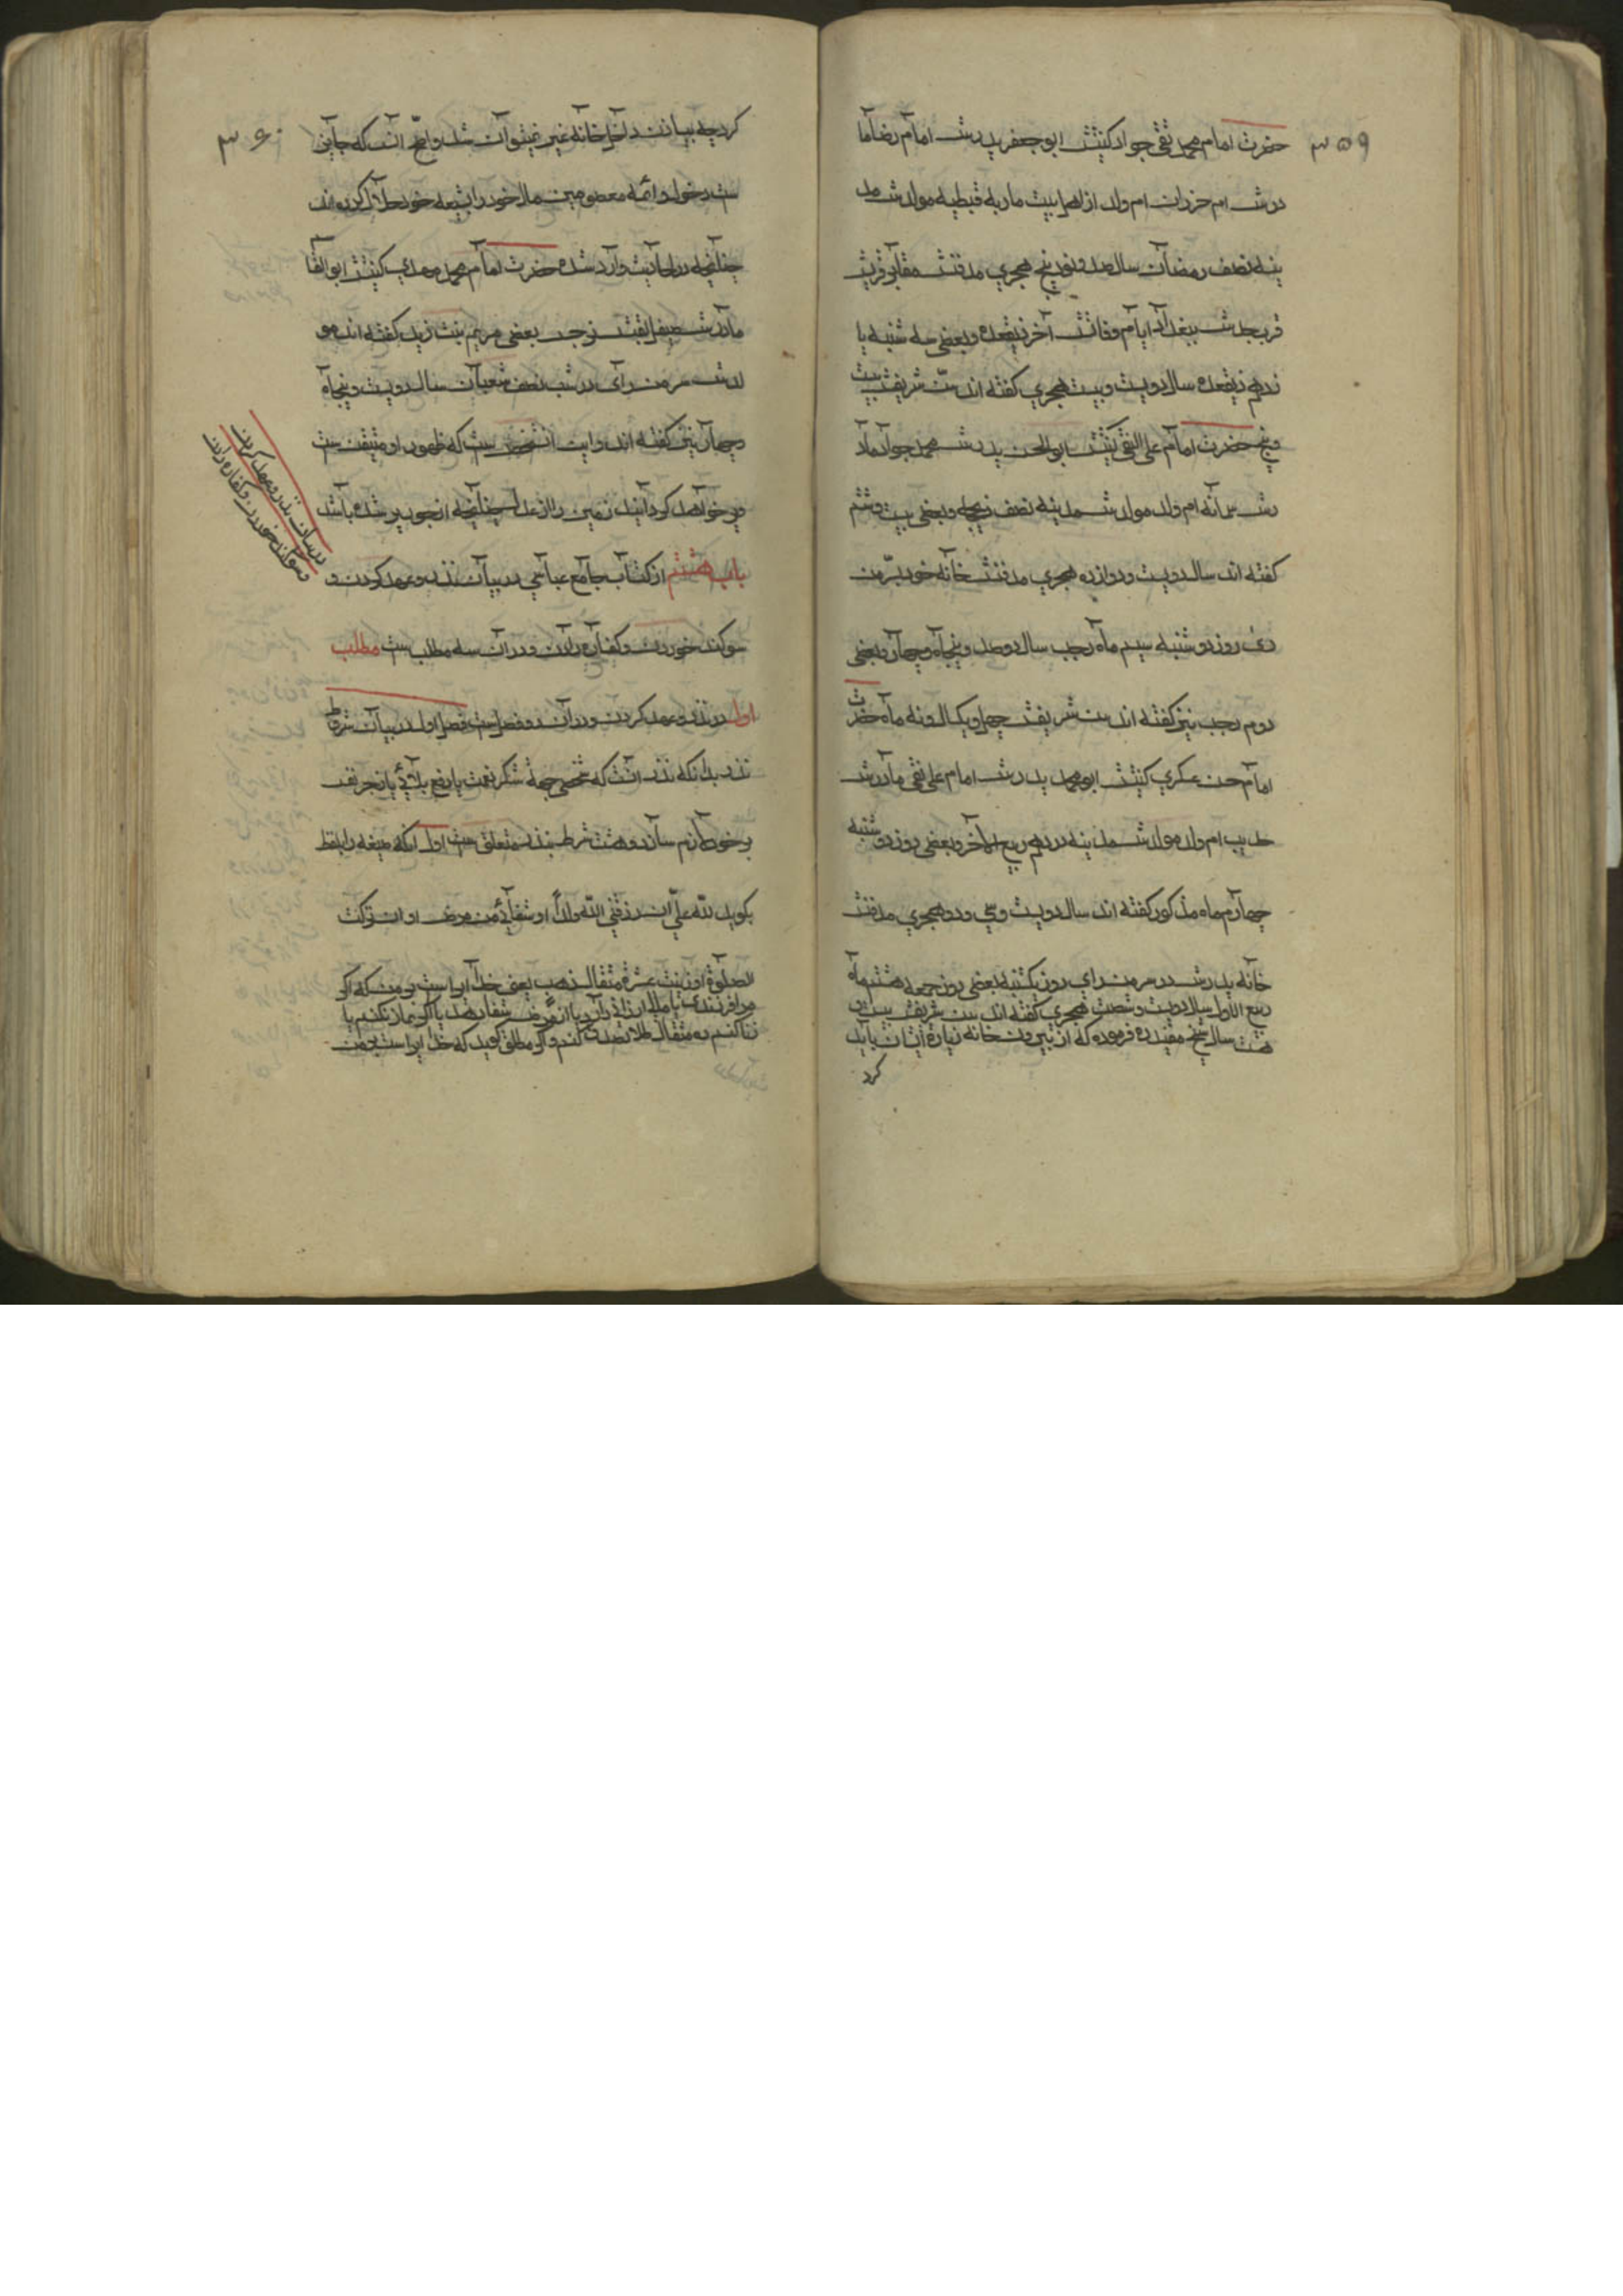 ۳۵۹
حضرت امام محمد تقی جواد کنیتش ابو جعفر پدرش امام رضا ما
درش ام ولد از اهل بیت ماریه قبطیه مولدش مد
ینه نصف رمضان سال صد و نود پنج هجری مدفنش مقابر قریش
قرب جدش ببغداد ایام وفاتش آخر ذیقعده و بعضی سه شنبه یا
زدهم ذیقعده سال دویست و بیست هجری کفته اند سن شریفش بیست
و پنج حضرت امام علی النقی کنیتش ابو الحسن پدرش محمد جواد ماد
رش سمانه ام ولد مولدش مدینه نصف ذیحجه و بعضی بیست و ششم
کفته اند سال دویست و دوازده هجری مدفنش خانه خود بسر من
رای روز دوشنبه سیم ماه رجب سال دوصد و پنجاه و چهار و بعضی
دوم رجب نیز کفته اند سن شریفش چهل و یکسال و نه ماه حضرت
امام حسن عسکری کنیتش ابو محمد پدرش امام علی نقی مادرش
حدیب ام ولد مولدش مدینه در دهم ربیع الآخر و بعضی روز دوشنبه
چهارم ماه مذکور کفته اند سال دویست و سی و دو هجری مدفنش
خانه پدرش در سر من رای روز یکشنبه بعضی روز جمعه هشتم ماه
ربیع الاول سال دویست و شصت هجری کفته اند سن شریفش بیست
هشت سال شیخ مفید ره فرموده که از بیرون خانه زیارة ایشان باید
کرد
۳۶۰
کرد چه بی اذن داخل خانه غیر نمیتوان شد و اصح آن که جایز
ست دخول و ائمه معصومین مال خود را بشیعه خود حلال کرده اند
چنانچه در احادیث وارد شده حضرت امام محمد مهدی کنیتش ابو القا
مادرش نرجس بعضی مریم بنت زید کفته اند مو
لدش سر من رای در شب نصف شعبان سال دویست و پنجاه
و چهار نیز کفته اند و این آنشخص ست که ظهور او متیقن ست
و پر خواهد کردانید زمین را از عدل چنانچه از جور پر شده باشد
باب هشتم از کتاب جامع عباسی در بیان نذر و عهد کردن و
سوکند خوردن و کفاره دادن و در آن سه مطلب ست مطلب
اول در نذر و عهد کردن و در آن دو فصل ست فصل اول در بیان شروط
نذر بدانکه نذر آنست که شخصی جهة شکر نعمت یا دفع بلائی یا زجر نفس
بر خود لازم سازد و هشت شرط بنذر متعلق ست اول آنکه صیغه را بلفظ
بکوید لله علی ان رزقنی الله ولداً او شفائی من مرض او ان ترکت
الصلوة او زنیت عشرة مثقال ذهب یعنی خدا را است بر من که اکر
مرا فرزندی یا مالی ارزانی دارد یا از مرض شفا دهد یا اکر نماز نکنم یا
زنا کنم ده مثقال طلا تصدق کنم و اکر مطلق کوید که خدا را است بر من
در بیان نذر و عهد کردن
و سوکند خوردن و کفاره دادن